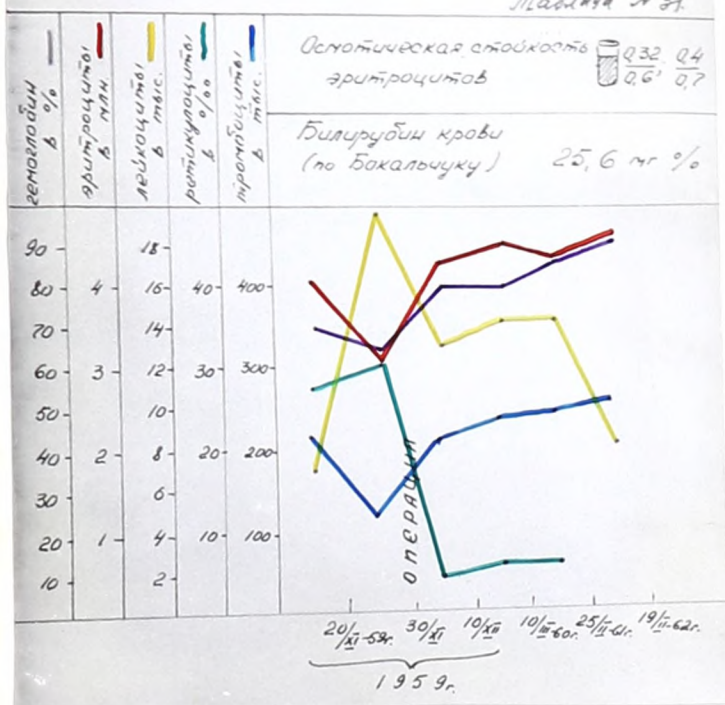 Таблица №
гемоглобин в %
эритроциты в млн.
лейкоциты в тыс.
ретикулоциты в %₀
тромбоциты в тыс.
Осмотическая стойкость эритроцитов
0,32 0,4
0,6 0,7
Билирубин крови
(по Бокальчуку) 25,6 мг %
90 18
80 4 16 40 400
70 14
60 3 12 30 300
50 10
40 2 8 20 200
30 6
20 1 4 10 100
10 2
операция
20/XI-59г. 30/XI 10/XII 10/III-60г. 25/II-61г. 19/II-62г.
1959г.